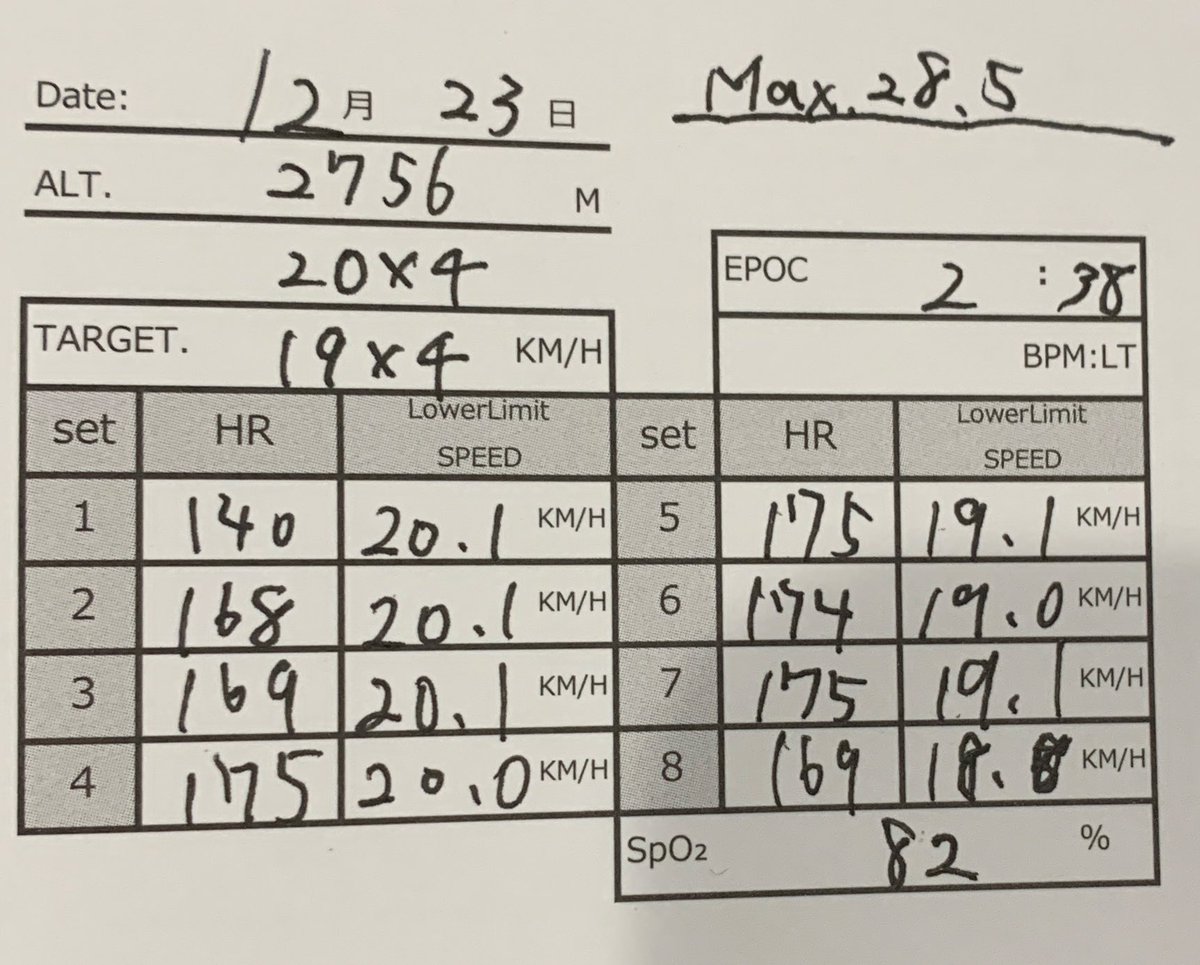 Date: 12月 23日
Max.28.5
ALT. 2756 M
20×4
TARGET. 19×4 KM/H
EPOC 2:38
BPM:LT
set HR LowerLimit SPEED set HR LowerLimit SPEED
1 140 20.1 KM/H 5 175 19.1 KM/H
2 168 20.1 KM/H 6 174 19.0 KM/H
3 169 20.1 KM/H 7 175 19.1 KM/H
4 175 20.0 KM/H 8 169 18.8 KM/H
SpO₂ 82 %